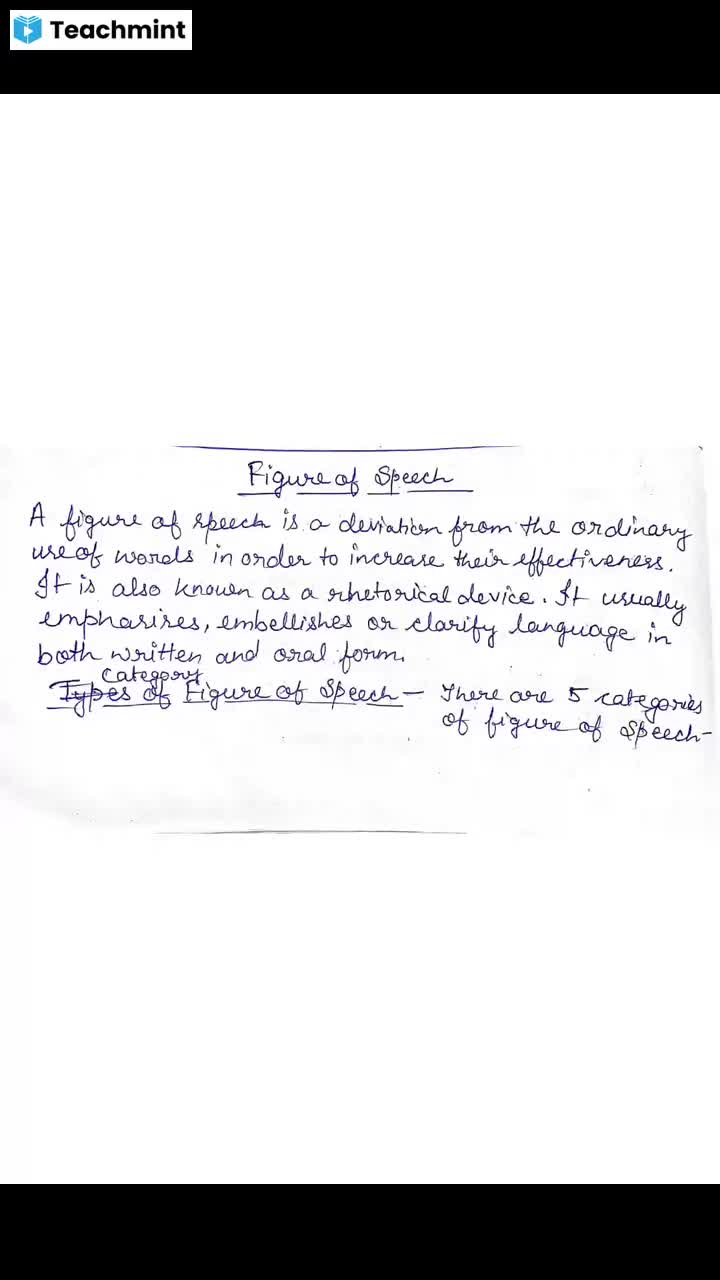 Teachmint
Figure of Speech
A figure of speech is a deviation from the ordinary
use of words in order to increase their effectiveness.
It is also known as a rhetorical device. It usually
emphasizes, embellishes or clarify language in
both written and oral form.
Category
Types of Figure of Speech — There are 5 categories
of figure of Speech-